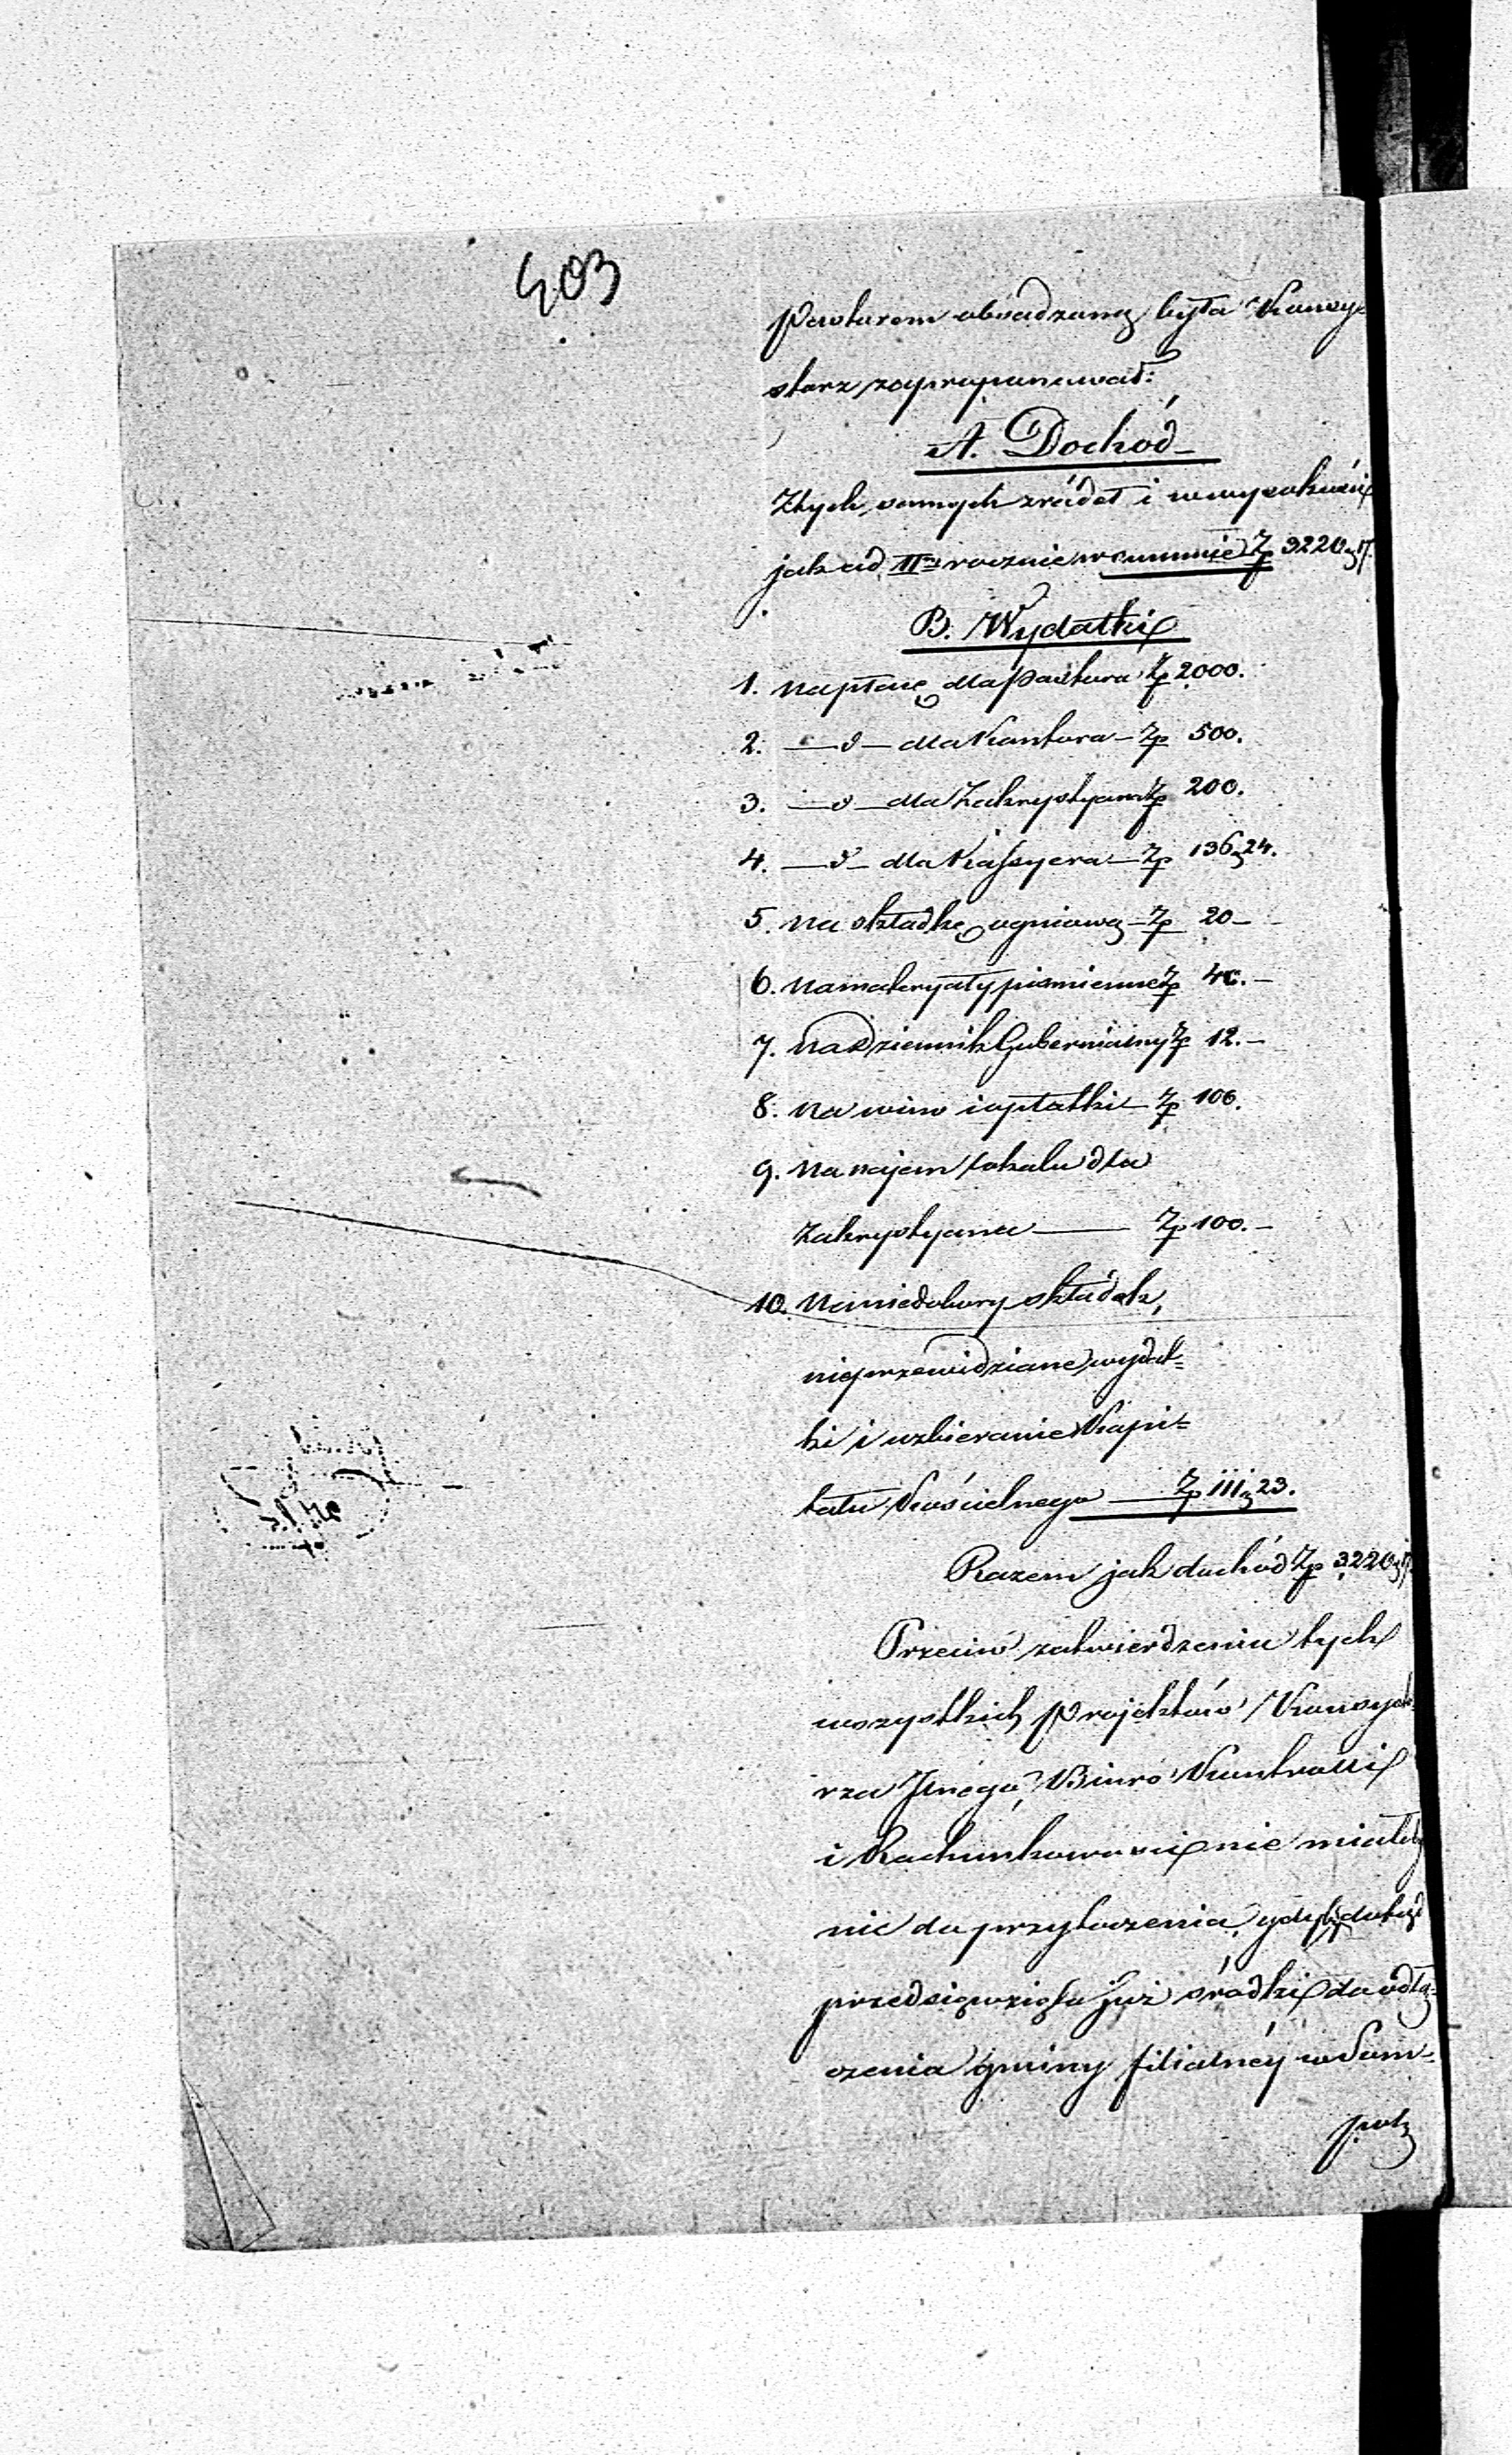 403
Pastorem obsadzaną była Konsy-
storz zaproponował:
A. Dochód
Z tych samych źródeł i w wysokości
jak ad II rocznie w summie Zp 3220,17.
B. Wydatki
1. na płacę dla Pastora Zp 2000.
2. —d— dla Kantora — Zp 500.
3. —d— dla Zakrystyana Zp 200.
4. —d— dla Kassyera — Zp 136,24.
5. na składkę ogniową — Zp 20 —
6. na materyały piśmienne Zp 40. —
7. na Dziennik Gubernialny Zp 12. —
8. na wino i opłatki — Zp 100.
9. na najem lokalu dla
Zakrystyana —— Zp 100. —
10. na niedobory składek,
nieprzewidziane wydat=
ki i uzbieranie Kapi=
tału Kościelnego —— Zp 111,23.
Razem jak dochód Zp 3220,17
Przeciw zatwierdzeniu tych
wszystkich projektów Konsysto-
rza Jnego, Biuro Kontrolli
i Rachunkowości nie miałoby
nic do przytoczenia, gdyby
przedsięwzięła już środki do odłą=
czenia gminy filialnéy w Som=
polz